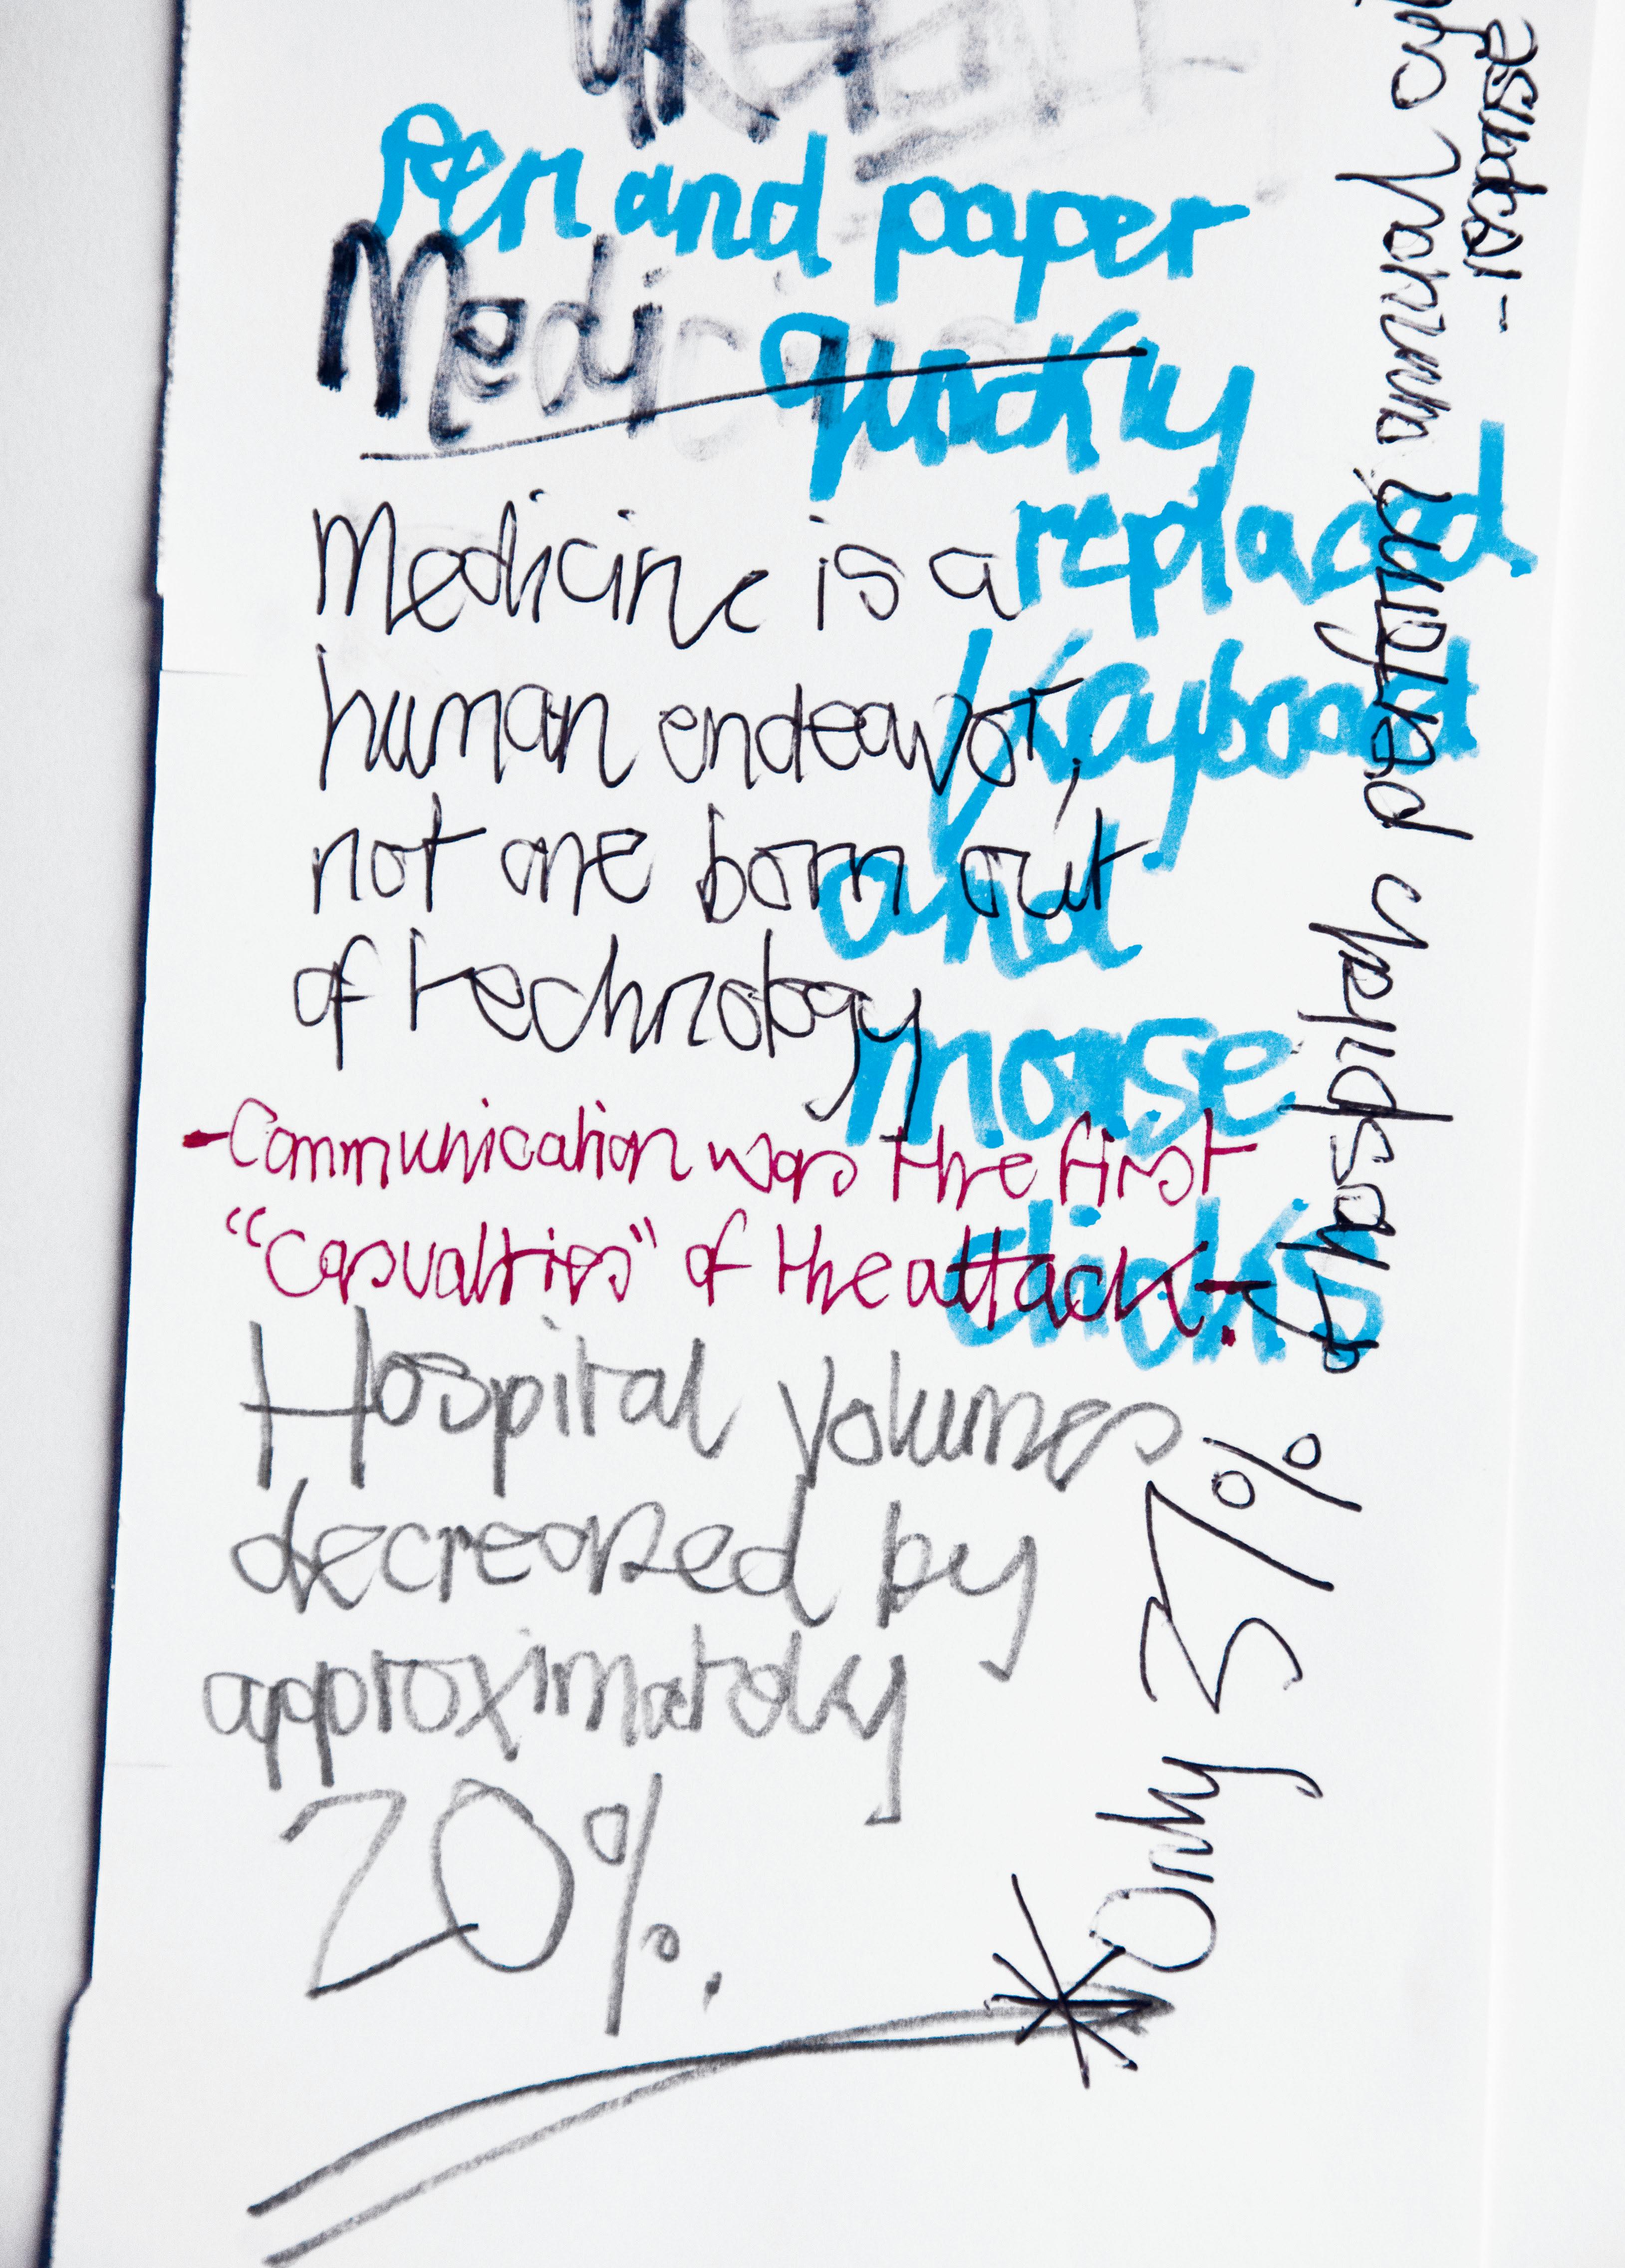 Pen and paper
Medi
quickly
replaced
keyboard
and
mouse
clicks
Medicine is a
human endeavor,
not one born out
of technology
-Communication was the first
"Casualties" of the attack.-
Hospital Volumes
decreased by
approximately
20%.
*Only 37% of hospitals perform annual
response-